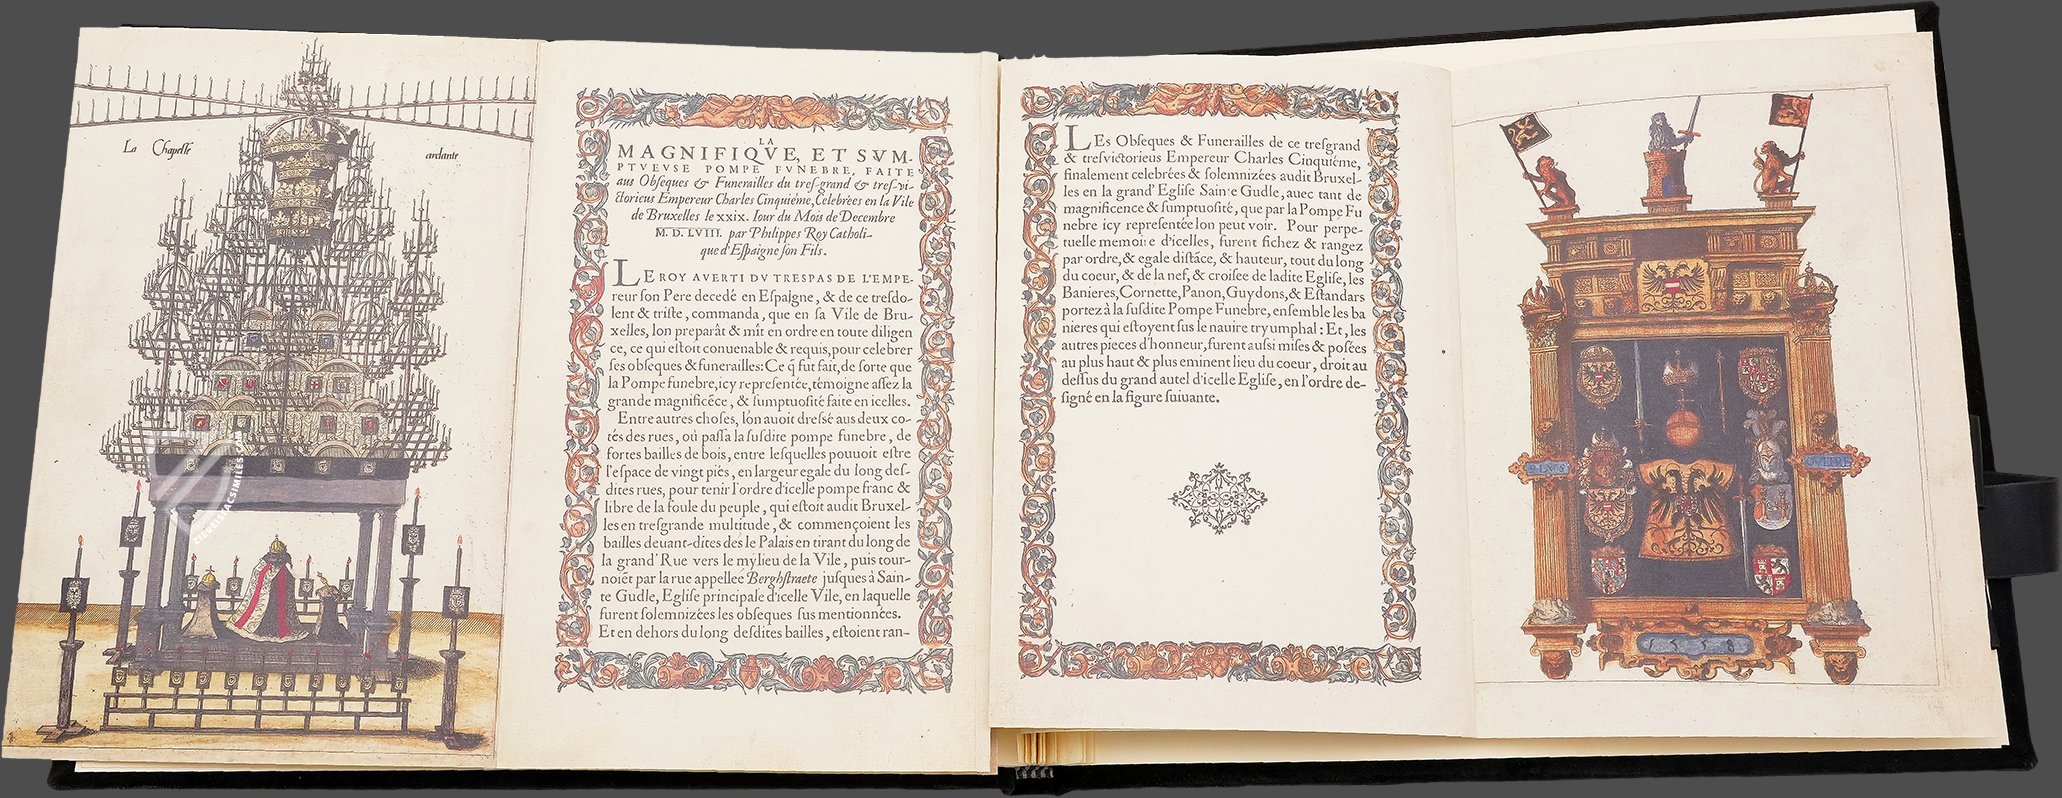 La Chapelle ardante
LA
MAGNIFIQVE, ET SVM-
PTVEVSE POMPE FVNEBRE, FAITE
aus Obſeques & Funerailles du treſ-grand & treſ-vi-
ctorieus Empereur Charles Cinquiéme, Celebrées en la Vile
de Bruxelles le XXIX. Iour du Mois de Decembre
M. D. LVIII. par Philippes Roy Catholi-
que d'Eſpaigne ſon Fils.
LE ROY AVERTI DV TRESPAS DE L'EMPE-
reur ſon Pere decedé en Eſpaigne, & de ce treſdo-
lent & triſte, commanda, que en ſa Vile de Bru-
xelles, lon preparât & mît en ordre en toute diligen
ce, ce qui eſtoit conuenable & requis, pour celebrer
ſes obſeques & funerailles: Ce q̃ fut fait, de ſorte que
la Pompe funebre, icy repreſentée, témoigne aſſez la
grande magnificẽce, & ſumptuoſité faite en icelles.
Entre autres choſes, lón auoit dreſsé aus deux co-
tés des rues, où paſſa la ſuſdite pompe funebre, de
fortes bailles de bois, entre leſquelles pouuoit eſtre
l'eſpace de vingt piés, en largeur egale du long deſ-
dites rues, pour tenir l'ordre d'icelle pompe franc &
libre de la foule du peuple, qui eſtoit audit Bruxel-
les en treſgrande multitude, & commençoient les
bailles deuant-dites dés le Palais en tirant du long de
la grand' Rue vers le mylieu de la Vile, puis tour-
noiét par la rue appellée Berghſtraete juſques à Sain-
te Gudle, Egliſe principale d'icelle Vile, en laquelle
furent ſolemnizées les obſeques ſus mentionnées.
Et en dehors du long deſdites bailles, eſtoient ran-
LEs Obſeques & Funerailles de ce treſgrand
& treſvictorieus Empereur Charles Cinquiéme,
finalement celebrées & ſolemnizées audit Bruxel-
les en la grand' Egliſe Sainte Gudle, auec tant de
magnificence & ſumptuoſité, que par la Pompe Fu
nebre icy repreſentée lon peut voir. Pour perpe-
tuelle memoire d'icelles, furent fichez & rangez
par ordre, & egale diſtãce, & hauteur, tout du long
du coeur, & de la nef, & croiſee de ladite Egliſe, les
Banieres, Cornette, Panon, Guydons, & Eſtandars
portez à la ſuſdite Pompe Funebre, enſemble les ba
nieres qui eſtoyent ſus le nauire tryumphal: Et, les
autres pieces d'honneur, furent auſsi miſes & poſées
au plus haut & plus eminent lieu du coeur, droit au
deſſus du grand autel d'icelle Egliſe, en l'ordre de-
ſigné en la figure ſuiuante.
PLVS
OVLTRE
1558
ZIEREIS FACSIMILES.COM